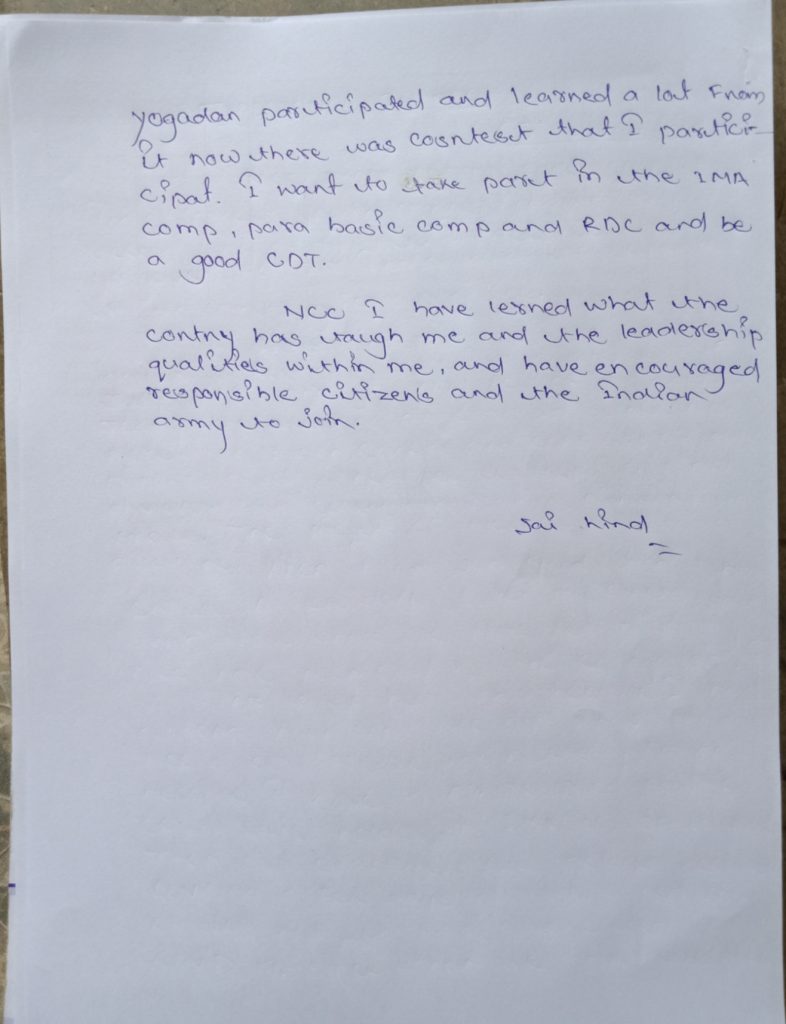 yogadan participated and learned a lat From
it now there was cosntest that I partici-
cipat. I want to take parst in the IMA
comp, para basic comp and RDC and be
a good CDT.
NCC I have lerned what the
contny has taugh me and the leadership
qualitiels within me, and have encouraged
responsible citizens and the Indian
army to join.
Jai hind